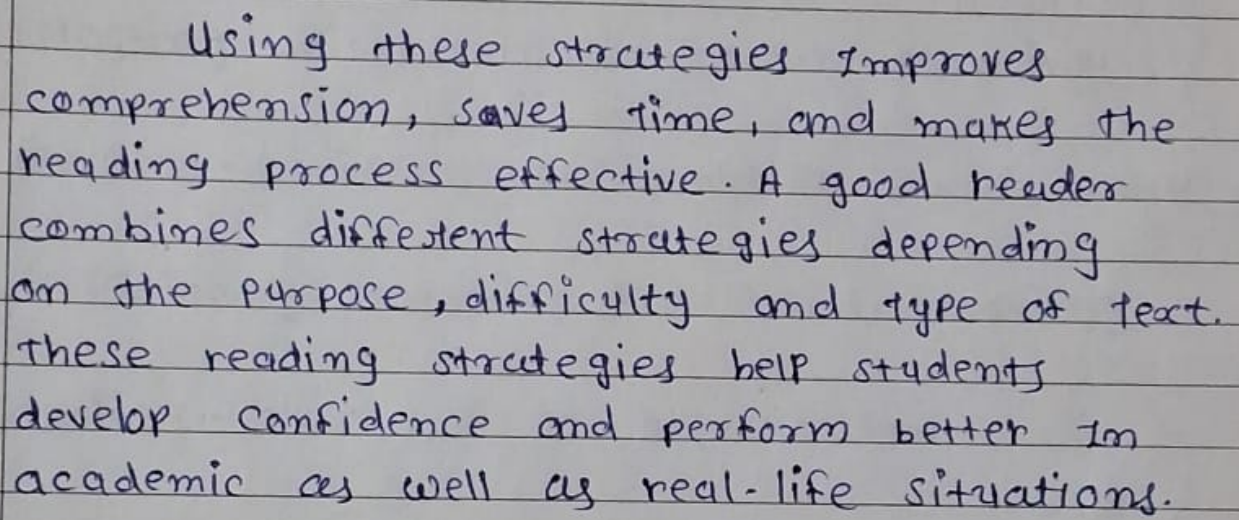 Using these strategies Improves
comprehension, saves time, and makes the
reading process effective. A good reader
combines different strategies depending
on the purpose, difficulty and type of text.
These reading strategies help students
develop confidence and perform better In
academic as well as real-life situations.